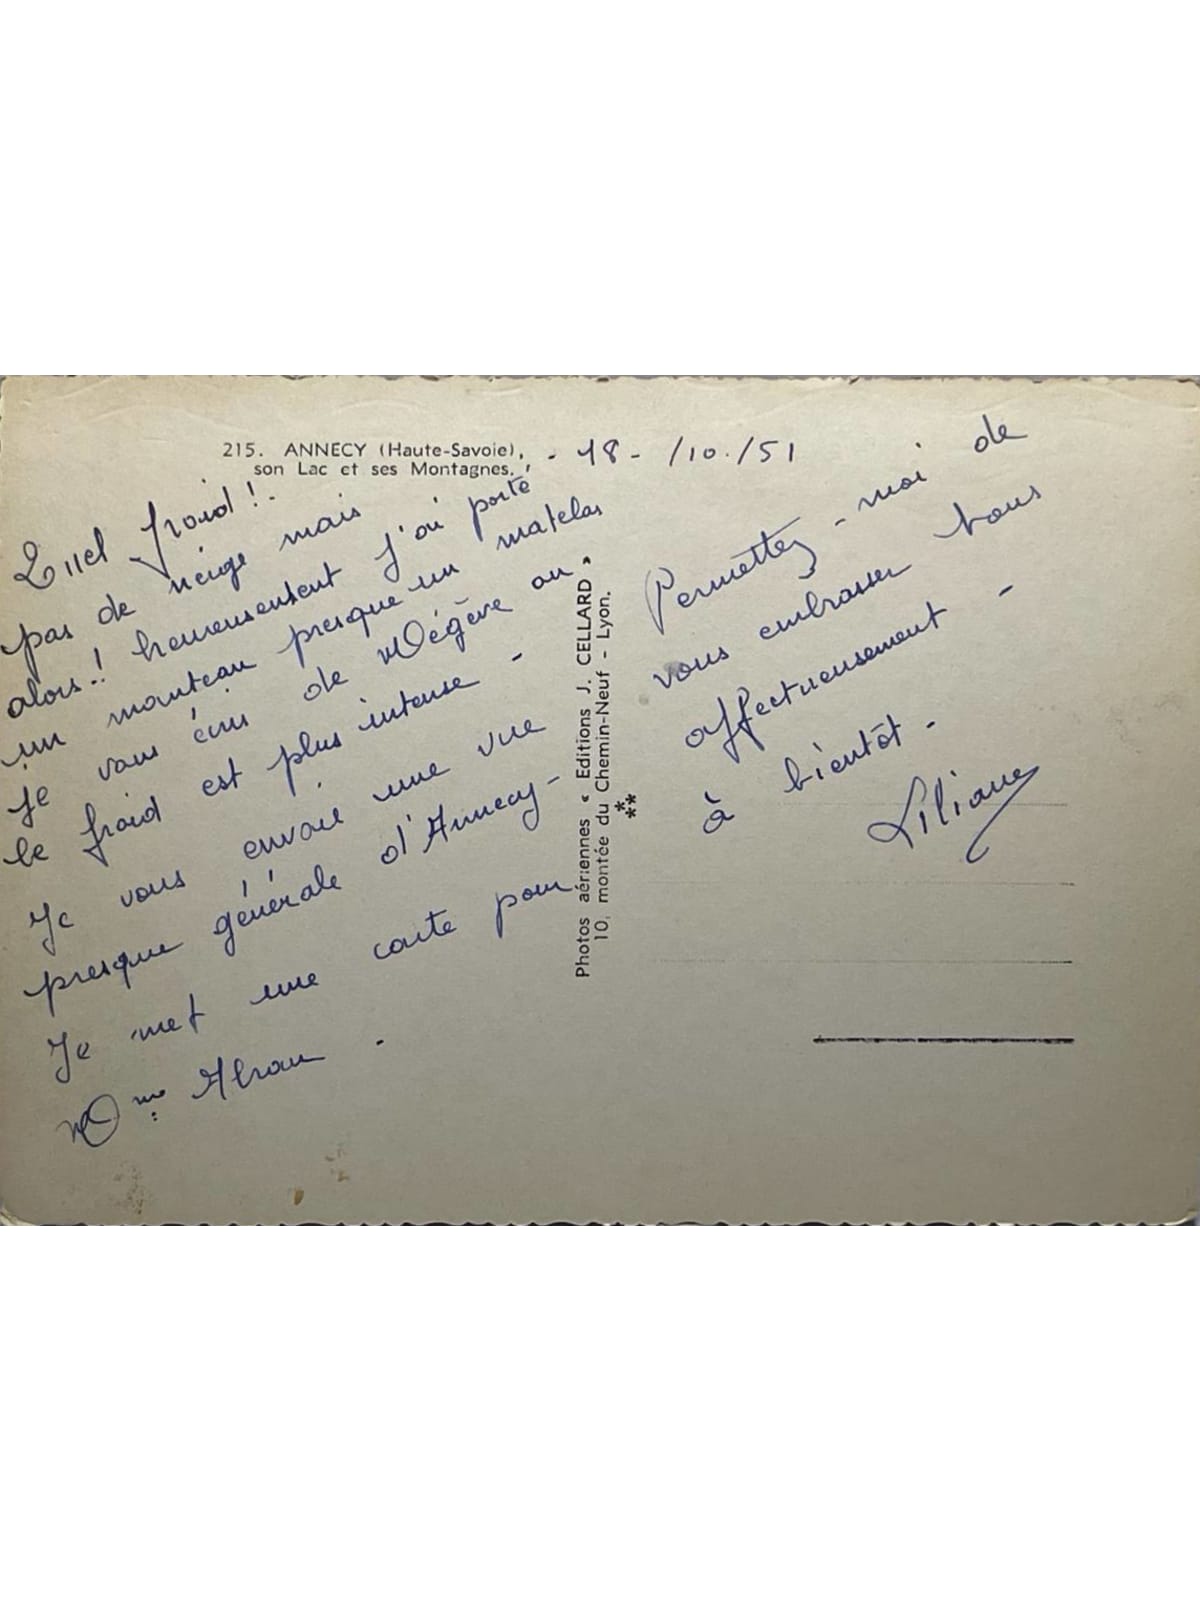 215. ANNECY (Haute-Savoie),
son Lac et ses Montagnes.
- 18 - /10./51
Quel froid ! -
pas de neige mais
alors !! heureusement j'ai porté
un manteau presque un matelas
je vous écris de Mégève où
le froid est plus intense -
Je vous envoie une vue
presque générale d'Annecy -
Je met une carte pour
Mme
Photos aériennes « Editions J. CELLARD »
10, montée du Chemin-Neuf - Lyon.
Permettez - moi de
vous embrasser tous
affectueusement -
à bientôt -
Liliane